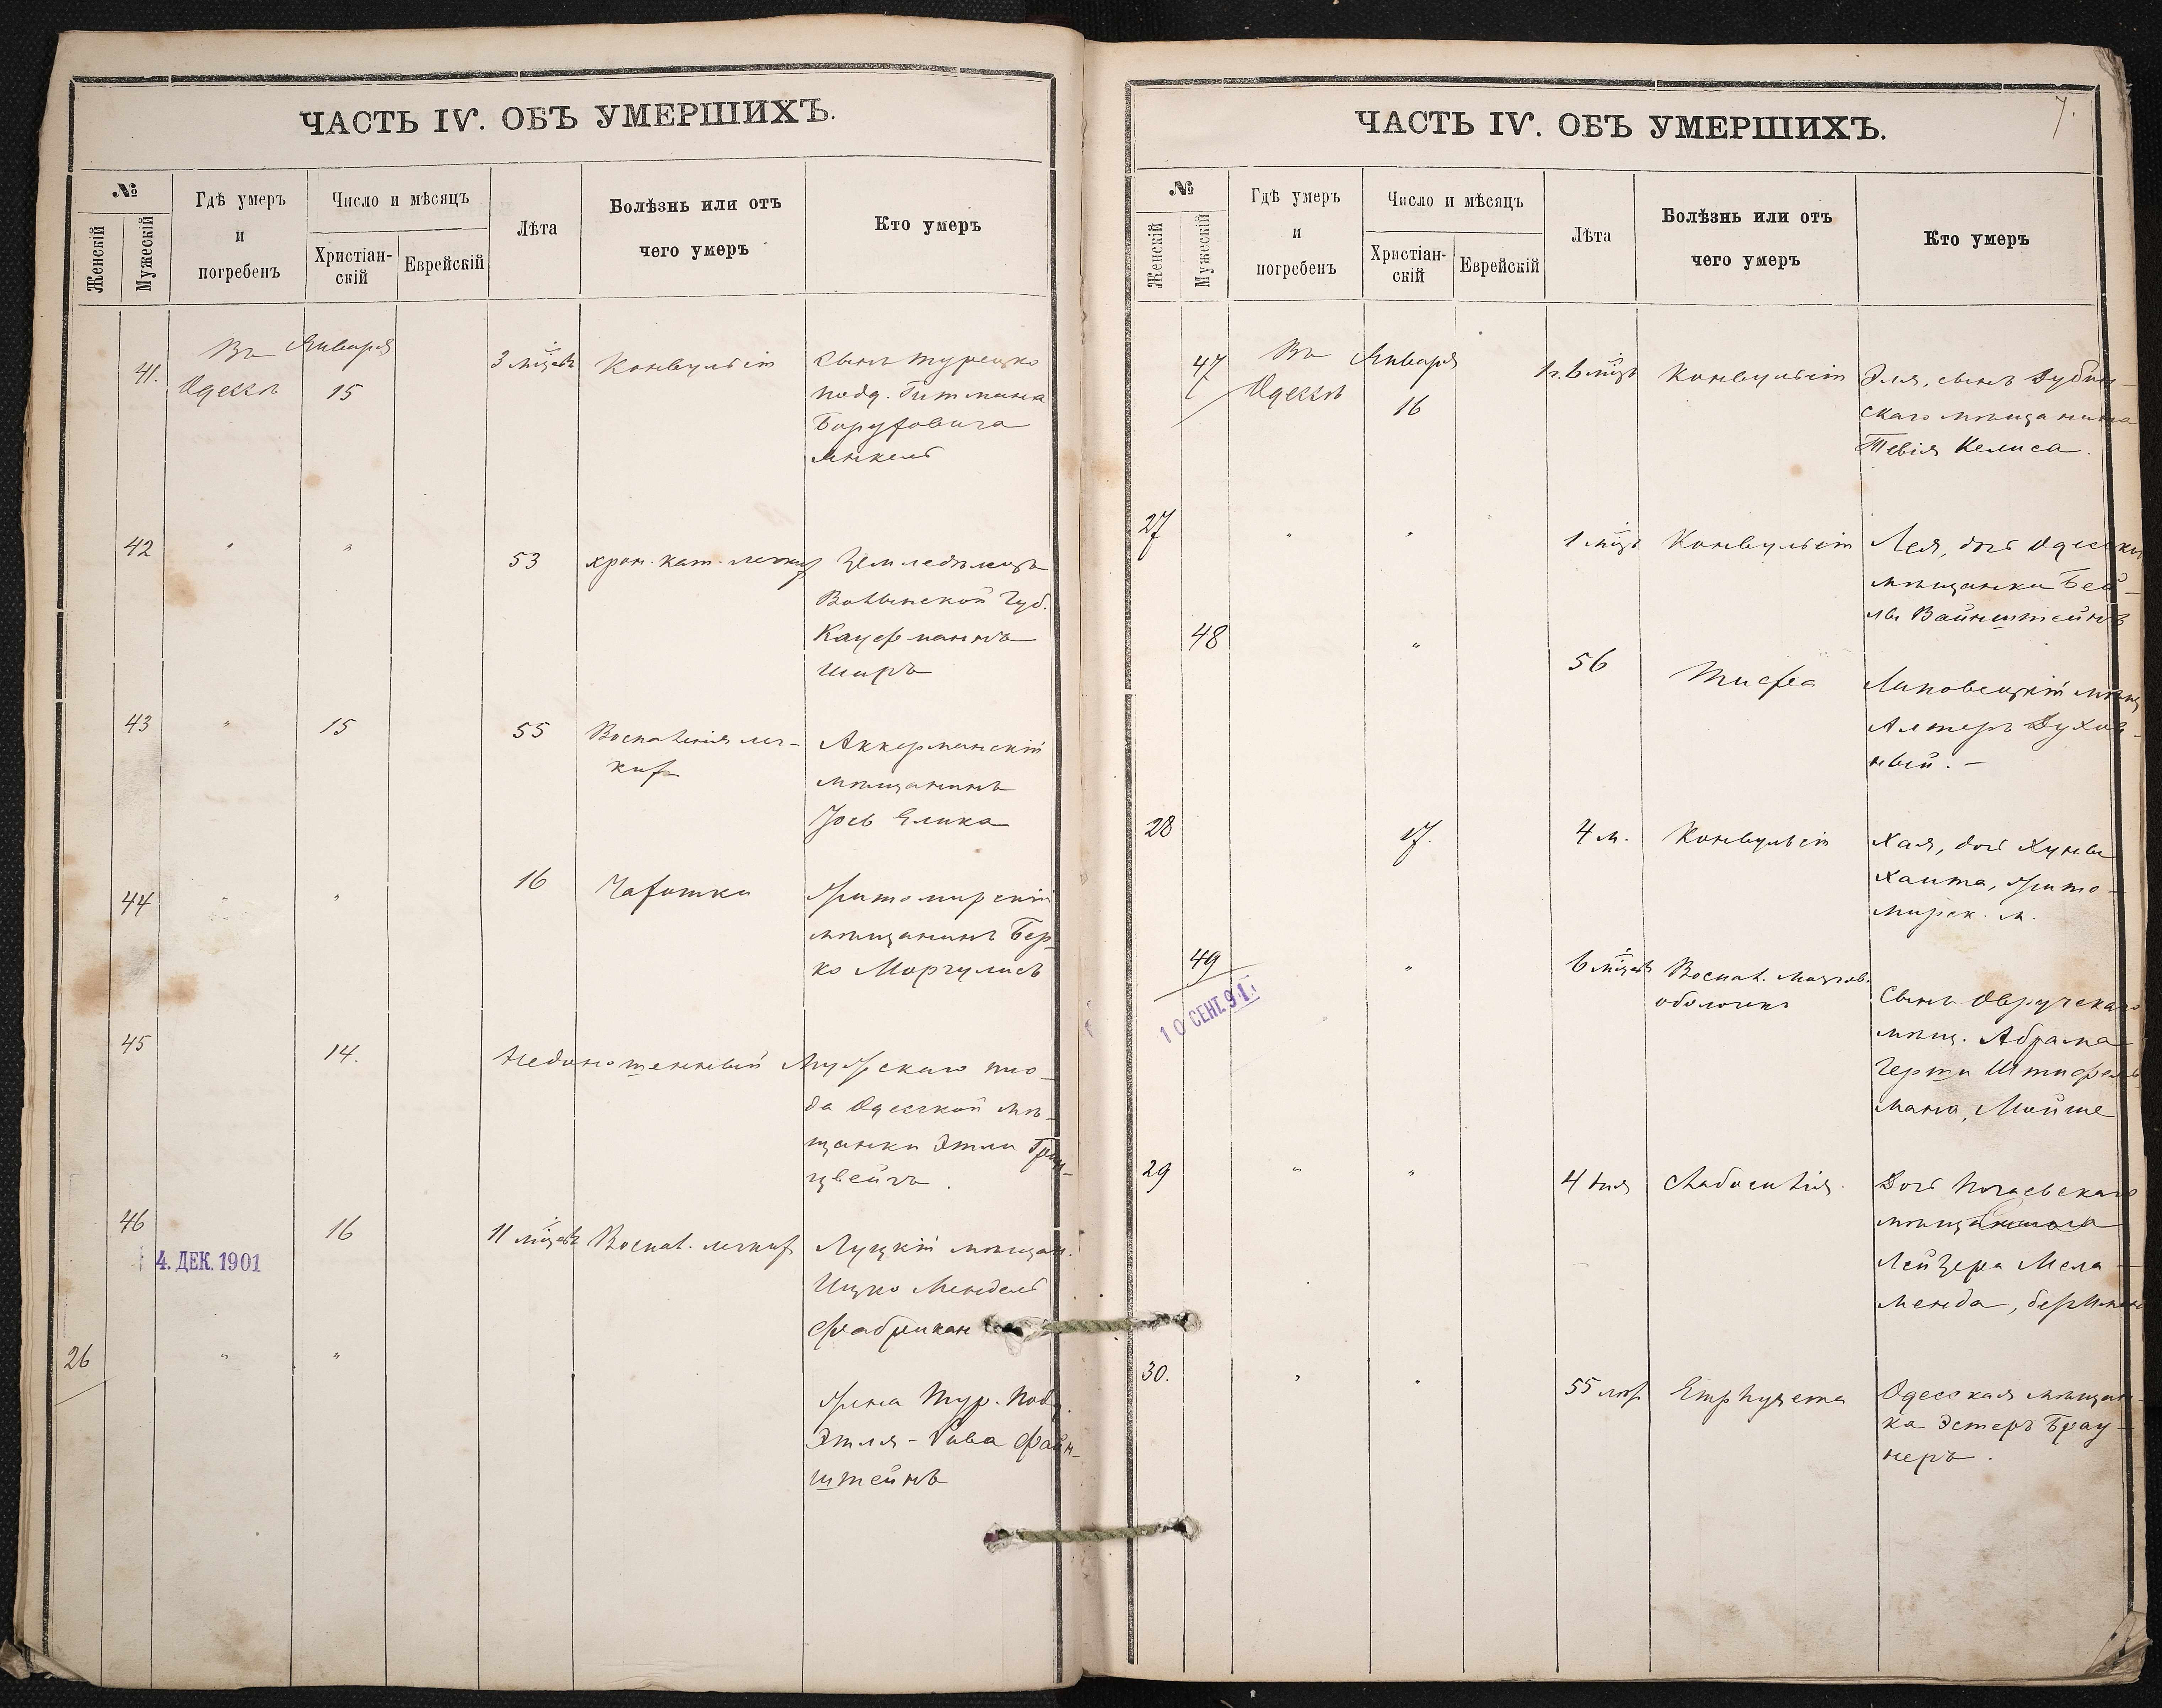 ЧАСТЬ IV. ОБЪ УМЕРШИХЪ.
№
Женскій
Мужескій
Гдѣ умеръ
и
погребенъ
Число и мѣсяцъ
Христіан-
скій
Еврейскій
Лѣта
Болѣзнь или отъ
чего умеръ
Кто умеръ
41.
Въ
Одессѣ
Января
15
3 мѣс.
Конвульсіи
Сынъ турецко
подд. Гитмана
Боруховича
Янкель
42
"
"
53
хрон. кат. легких
Земледѣлецъ
Волынской Губ.
Кауфманъ
Ширъ
43
"
15
55
Воспаленія лег-
ких
Аккерманскій
мѣщанинъ
Іось
44
"
"
16
Чахотка
Житомирскій
мѣщанинъ Бер-
ко Моргулисъ
45
14.
Недоношенный
Мужскаго пло-
да Одесской мѣ-
щанки Этли
цвейгъ.
46
4. ДЕК. 1901
16
11 мѣс.
Воспал. легких
Луцкій мѣщан.
Ицко Мендель
Фабрикан
26
"
"
Жена Тур. Подд.
Этля-Рива Файн-
штейнъ
ЧАСТЬ IV. ОБЪ УМЕРШИХЪ.
7.
№
Женскій
Мужескій
Гдѣ умеръ
и
погребенъ
Число и мѣсяцъ
Христіан-
скій
Еврейскій
Лѣта
Болѣзнь или отъ
чего умеръ
Кто умеръ
47
Въ
Одессѣ
Января
16
1 г. 6 мѣс.
Конвульсіи
Эля, сынъ Дубен-
скаго мѣщанина
Тевія Келиса.
27
"
"
1 мѣс.
Конвульсіи
Лея, дочь Одесской
мѣщанки Бей-
лы Вайнштейнъ
48
"
56
Тифа
Липовецкій мѣщ.
Алтеръ Духов-
ный. –
28
17.
4 м.
Конвульсіи
Хая, дочь Хуны
Хаита, Жито-
мирск. м.
49
10 СЕНТ. 91
"
6 мѣс.
Воспал. мозгов.
оболочки
Сынъ Овручскаго
мѣщ. Абрама
Герша Штифель
мана, Мойше
29
"
"
4 дня
Слабосилія
Дочь Почаевскаго
мѣщанина
Лейзера Мела-
меда, безъимен
30.
"
"
55 лѣт
Емphyзема
Одесская мѣщан-
ка Эстеръ Брау-
неръ.